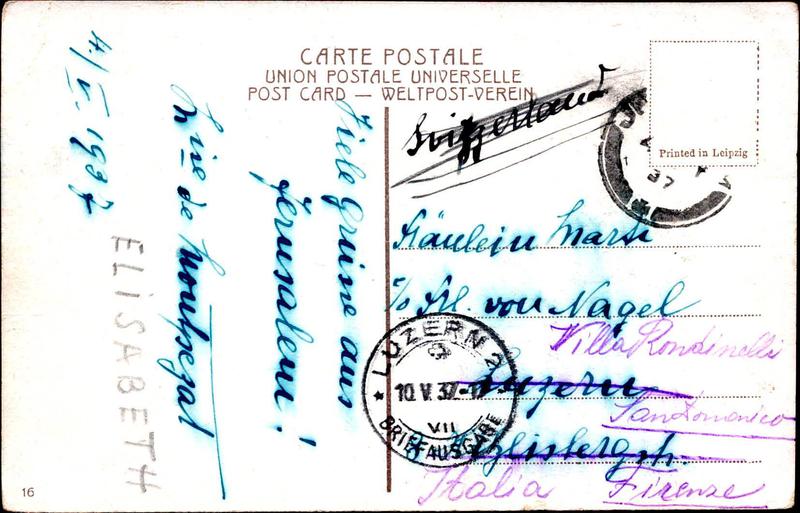 CARTE POSTALE
UNION POSTALE UNIVERSELLE
POST CARD — WELTPOST-VEREIN
Printed in Leipzig
4./V. 1937
Viele Grüsse aus
Jerusalem!
de Montségal
ELISABETH
Svizzerland
37
Fräulein
c/o Frl. von Nagel
Villa Rondinelli
Luzern
San Domenico
Italia Firenze
LUZERN 2
10.V.37.-17
VII
BRIEFAUSGABE
16